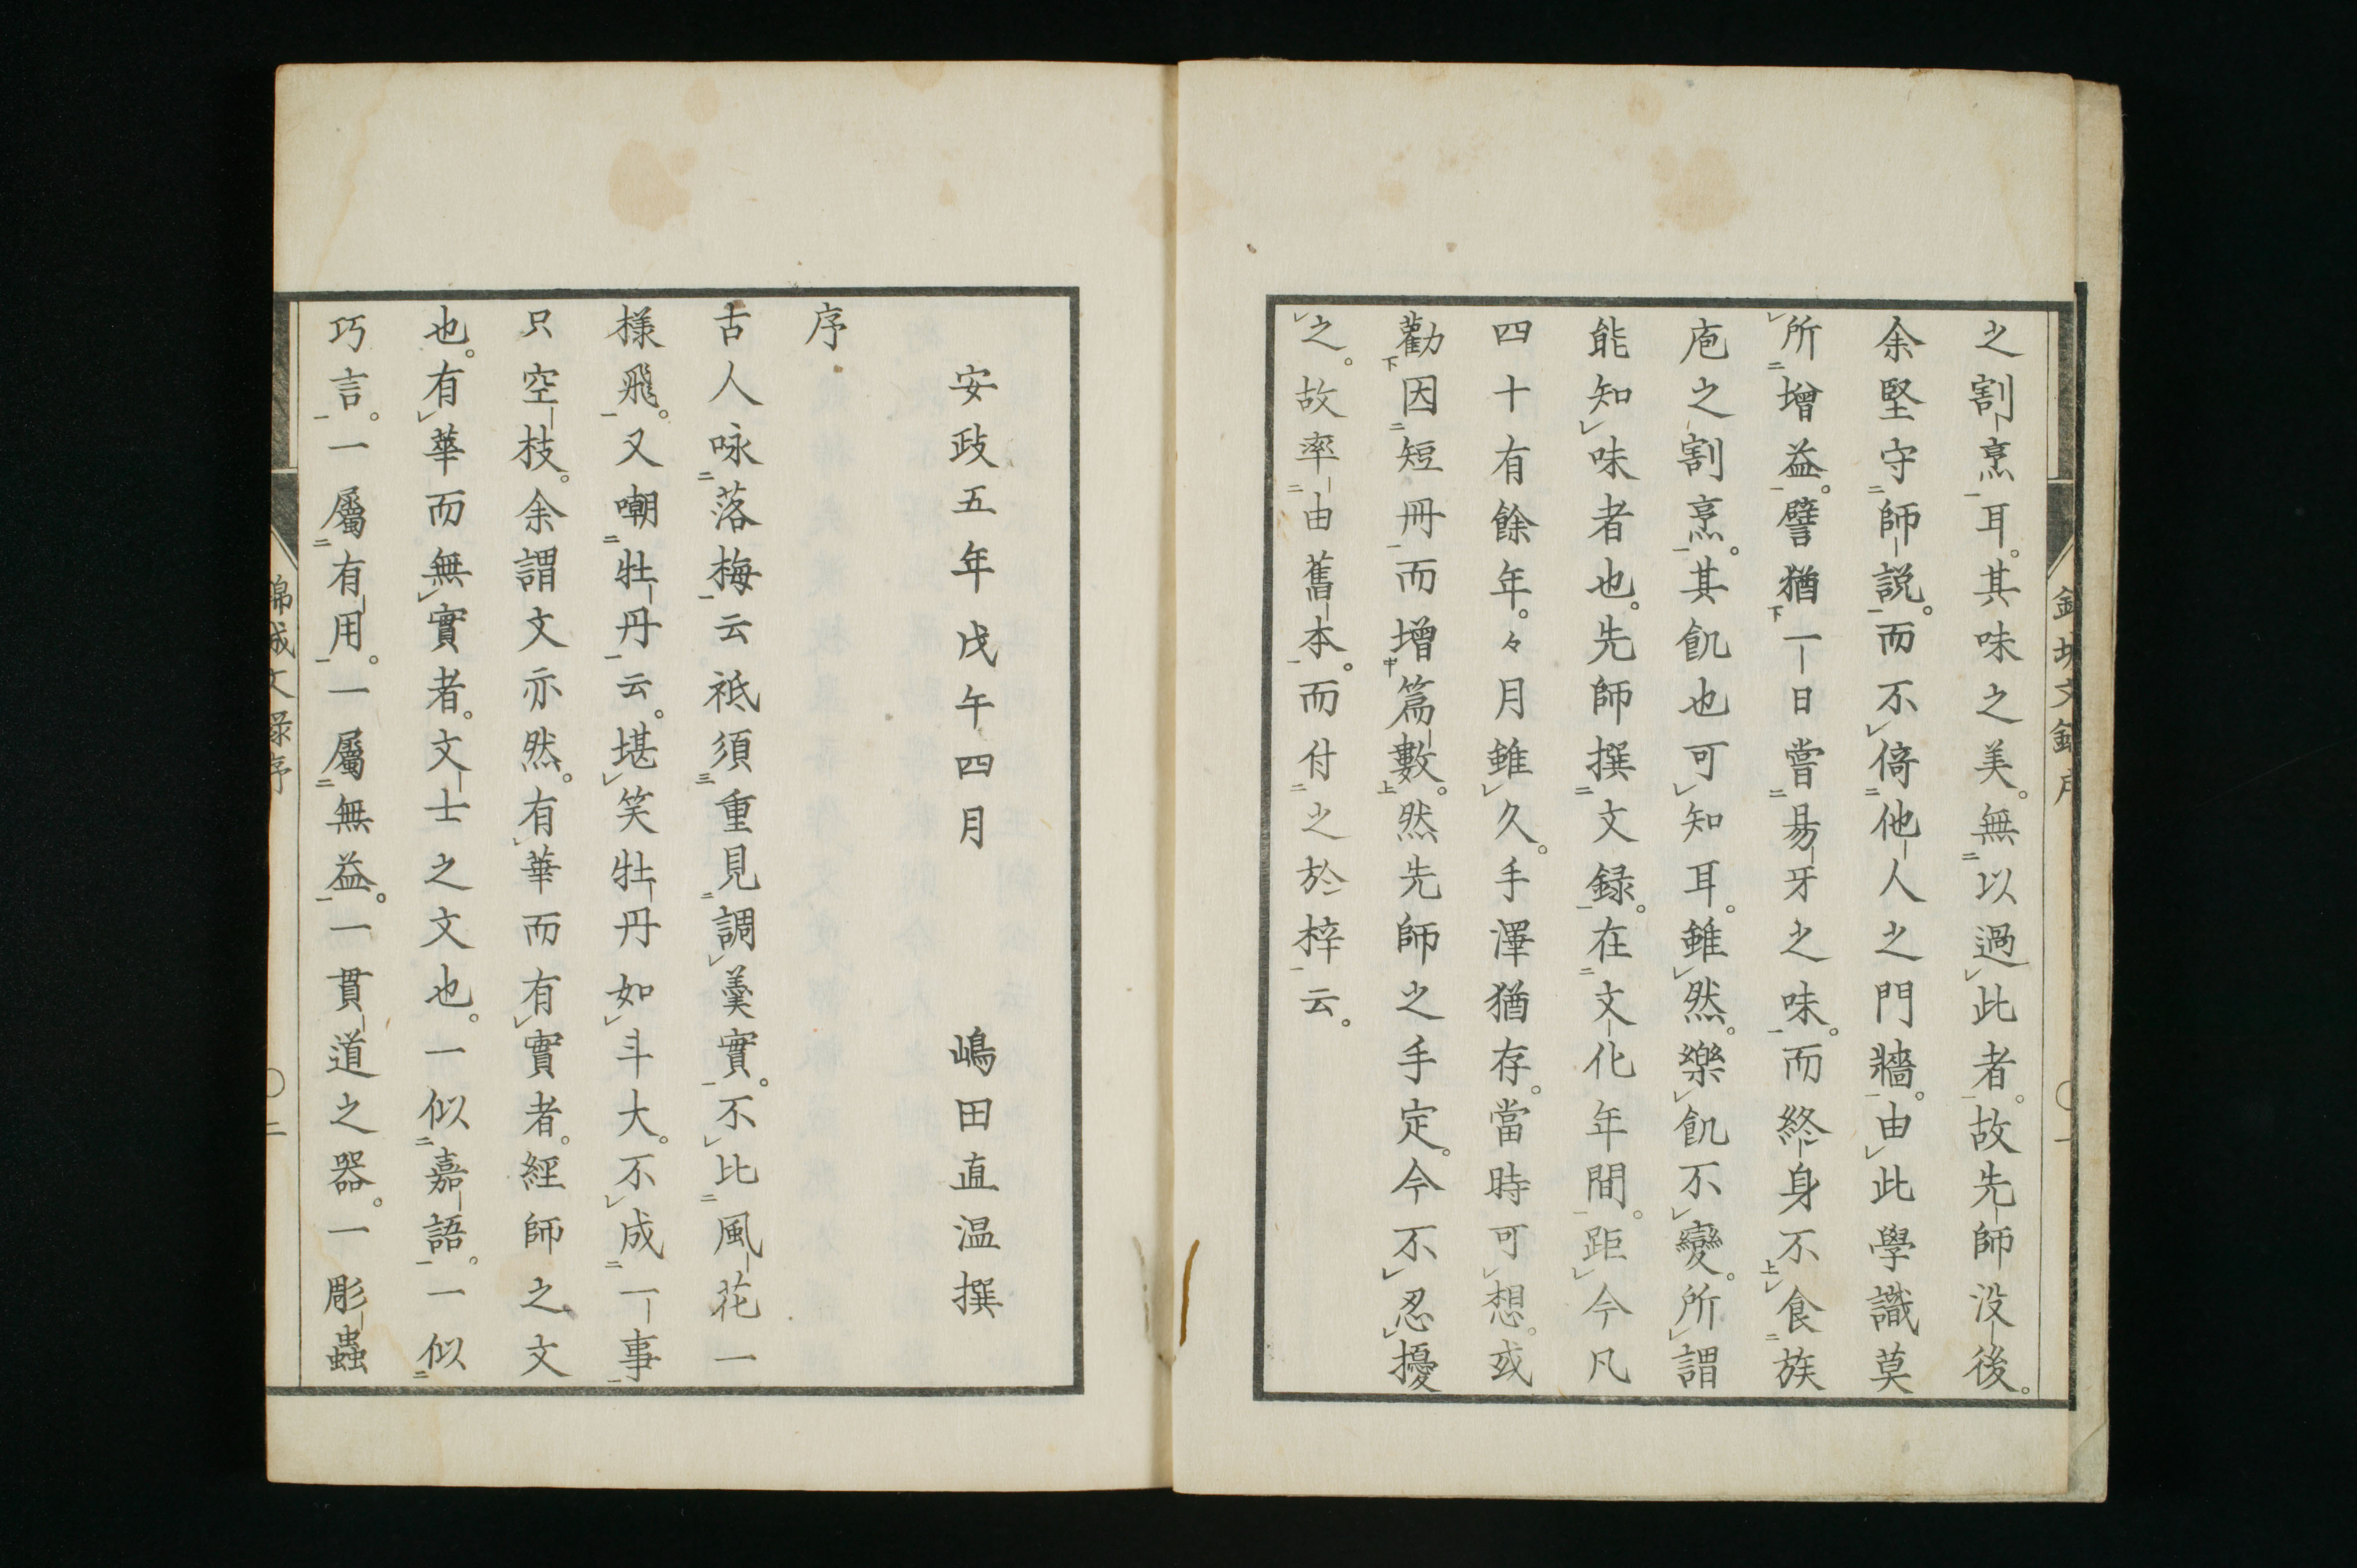 之割烹耳。其味之美。無以過此者。故先師没後。
余堅守師説。而不倚他人之門牆。由此學識莫
所增益。譬猶一日嘗易牙之味。而終身不食族
庖之割烹。其飢也可知耳。雖然。樂飢不變。所謂
能知味者也。先師撰文録。在文化年間。距今凡
四十有餘年。々月雖久。手澤猶存。當時可想。或
勸因短冊而增篇數。然先師之手定。今不忍擾
之。故率由舊本。而付之於梓云。
安政五年戊午四月 嶋田直温撰
序
古人咏落梅云祗須重見調羹實。不比風花一
樣飛。又嘲牡丹云。堪笑牡丹如斗大。不成一事
只空枝。余謂文亦然。有華而有實者。經師之文
也。有華而無實者。文士之文也。一似嘉語。一似
巧言。一屬有用。一屬無益。一貫道之器。一彫蟲
錦城文録序 〇一
錦城文録序 〇二